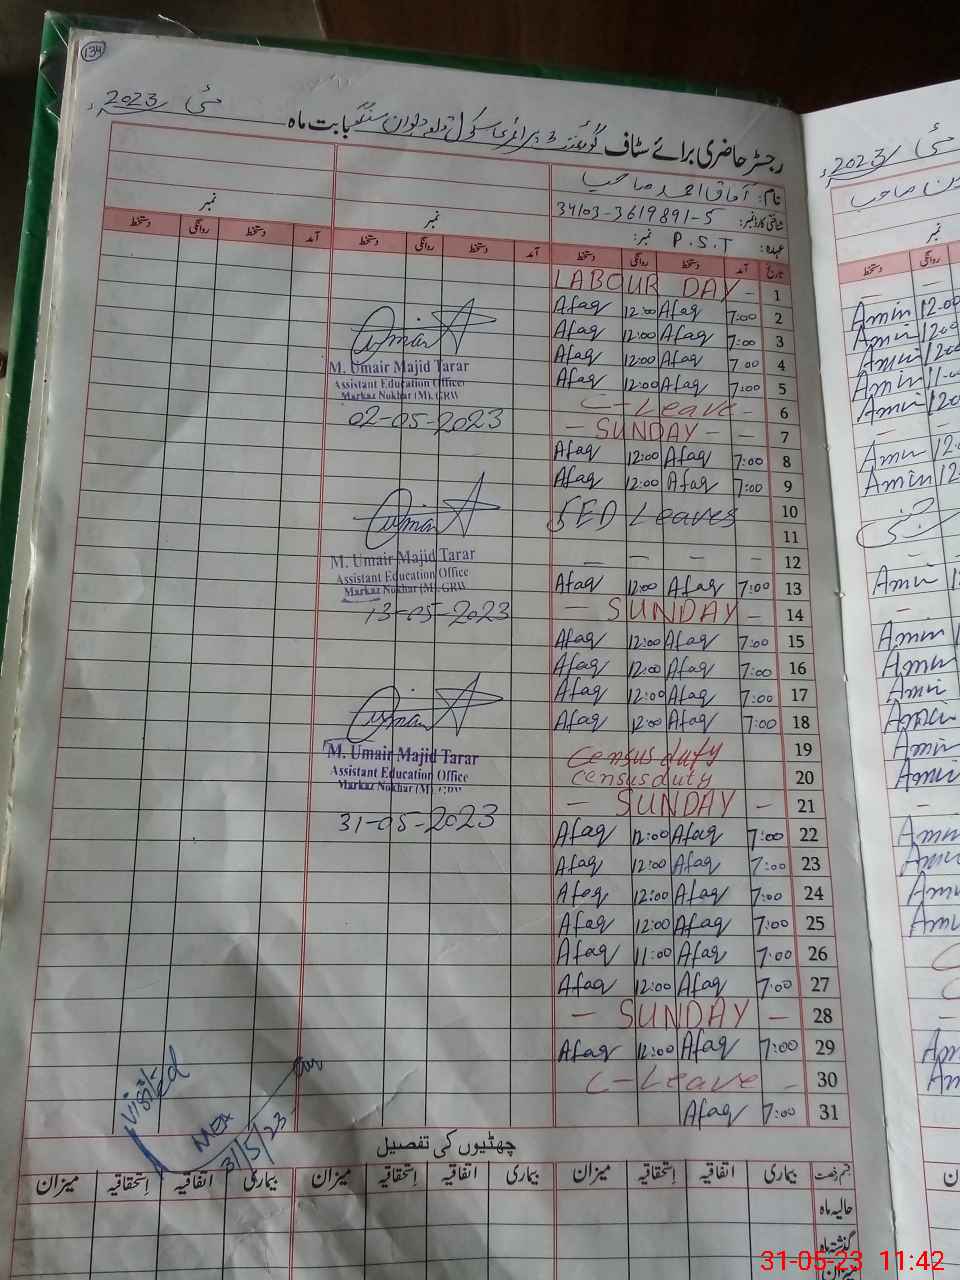 134
مئی 2023ء
رجسٹر حاضری برائے سٹاف گورنمنٹ پرائمری سکول قلعہ دیوان سنگھ بابت ماہ
نام: آفاق احمد صاحب
شناختی کارڈ نمبر: 34103-3619891-5
عہدہ: P.S.T نمبر:
نمبر
نمبر
تاریخ آمد دستخط روانگی دستخط آمد دستخط روانگی دستخط آمد دستخط روانگی دستخط
LABOUR DAY - 1
Afaq 12:00 Afaq 7:00 2
Afaq 12:00 Afaq 7:00 3
Afaq 12:00 Afaq 7:00 4
Afaq 12:00 Afaq 7:00 5
C-Leave - 6
- SUNDAY - - 7
Afaq 12:00 Afaq 7:00 8
Afaq 12:00 Afaq 7:00 9
5ED Leaves 10
11
- - - - 12
Afaq 12:00 Afaq 7:00 13
- SUNDAY - 14
Afaq 12:00 Afaq 7:00 15
Afaq 12:00 Afaq 7:00 16
Afaq 12:00 Afaq 7:00 17
Afaq 12:00 Afaq 7:00 18
Census duty 19
Census duty 20
- SUNDAY - 21
Afaq 12:00 Afaq 7:00 22
Afaq 12:00 Afaq 7:00 23
Afaq 12:00 Afaq 7:00 24
Afaq 12:00 Afaq 7:00 25
Afaq 11:00 Afaq 7:00 26
Afaq 12:00 Afaq 7:00 27
- SUNDAY - 28
Afaq 12:00 Afaq 7:00 29
C-Leave - 30
Afaq 7:00 31
M. Umair Majid Tarar
Assistant Education Officer
Markaz Nokhar (M), GRW
02-05-2023
M. Umair Majid Tarar
Assistant Education Office
Markaz Nokhar (M), GRW
13-05-2023
M. Umair Majid Tarar
Assistant Education Office
Markaz Nokhar (M), GRW
31-05-2023
Visited
MEA
31/5/23
چھٹیوں کی تفصیل
قسم رخصت بیماری اتفاقیہ استحقاقیہ میزان بیماری اتفاقیہ استحقاقیہ میزان بیماری اتفاقیہ استحقاقیہ میزان
حالیہ ماہ
گذشتہ ماہ
میزان
مئی 2023ء
صاحب
نمبر
روانگی دستخط
Amin 12:00
Amin 12:00
Amin
Amin 11:00
Amin 12:00
Amin 12:
Amin 12:
Amin
Amin
Amin
Amin
Amin
Amin
Amin
Amin
Amin
31-05-23 11:42